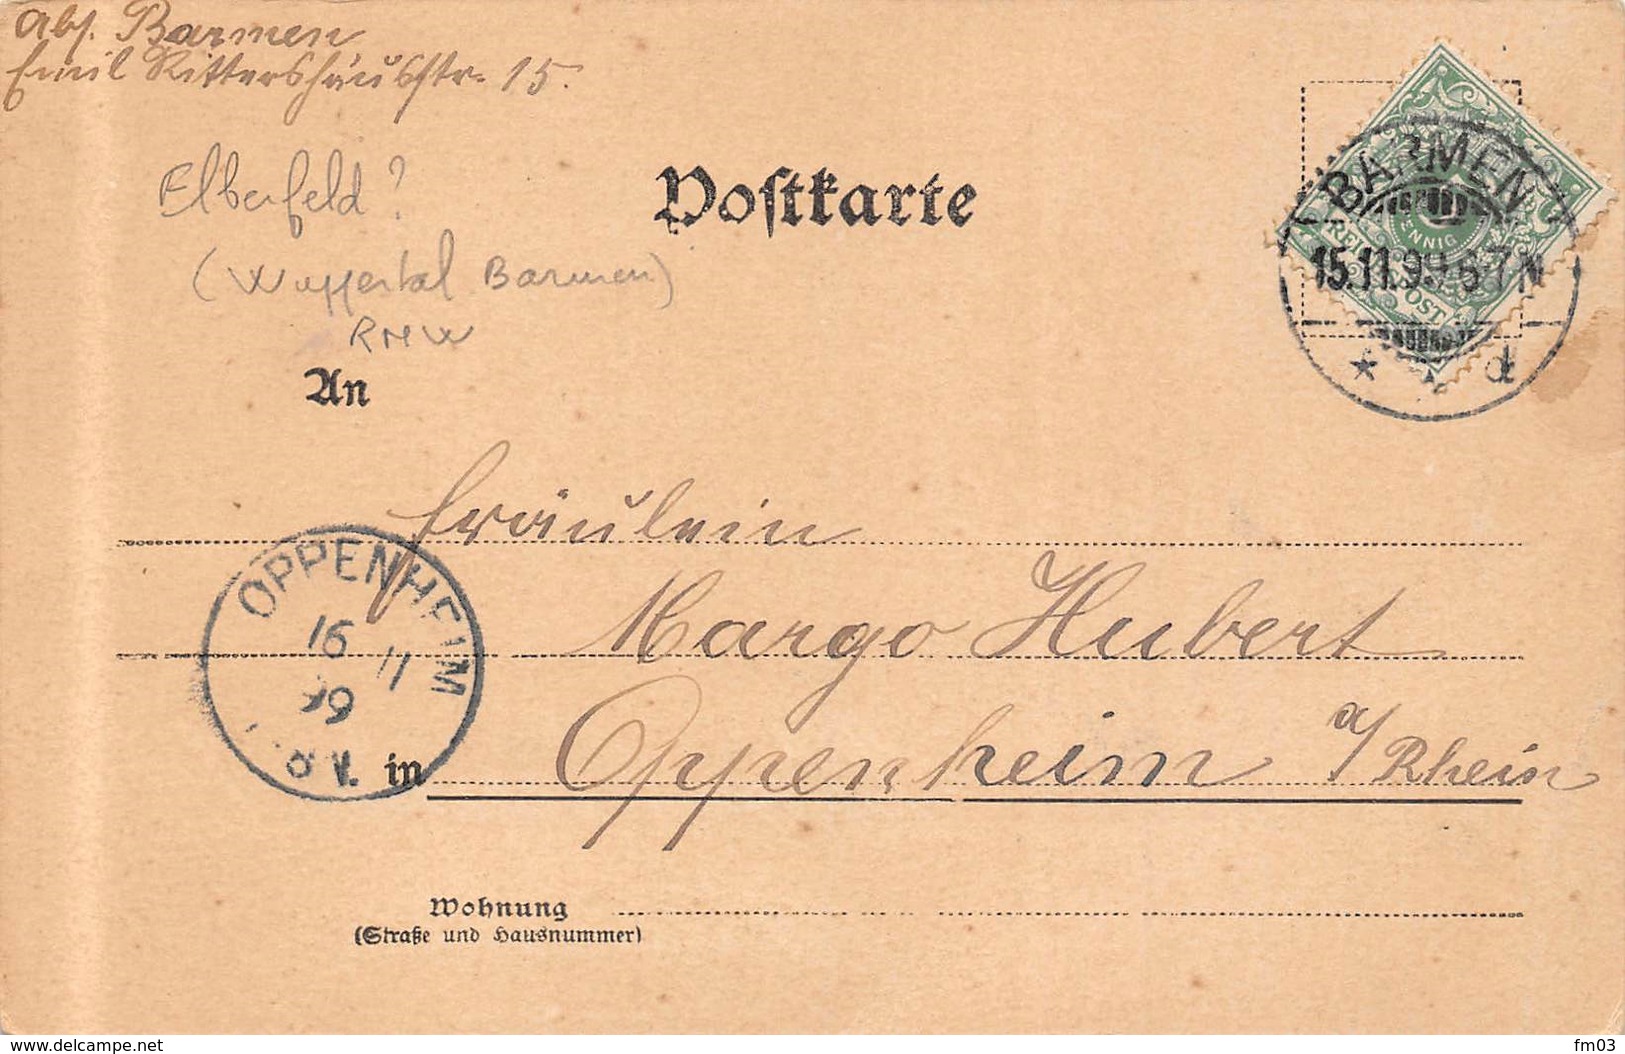 Abs. Barmen
Emil Rittershausstr. 15.
Elberfeld?
(Wuppertal Barmen)
RNW
Postkarte
BARMEN
5
PFENNIG
REICHSPOST
15.11.99 6-7N
* d
An
Fräulein
OPPENHEIM
16 11
99
V.
Margo Hubert
in Oppenheim a/Rhein
Wohnung
(Straße und Hausnummer)
www.delcampe.net
fm03